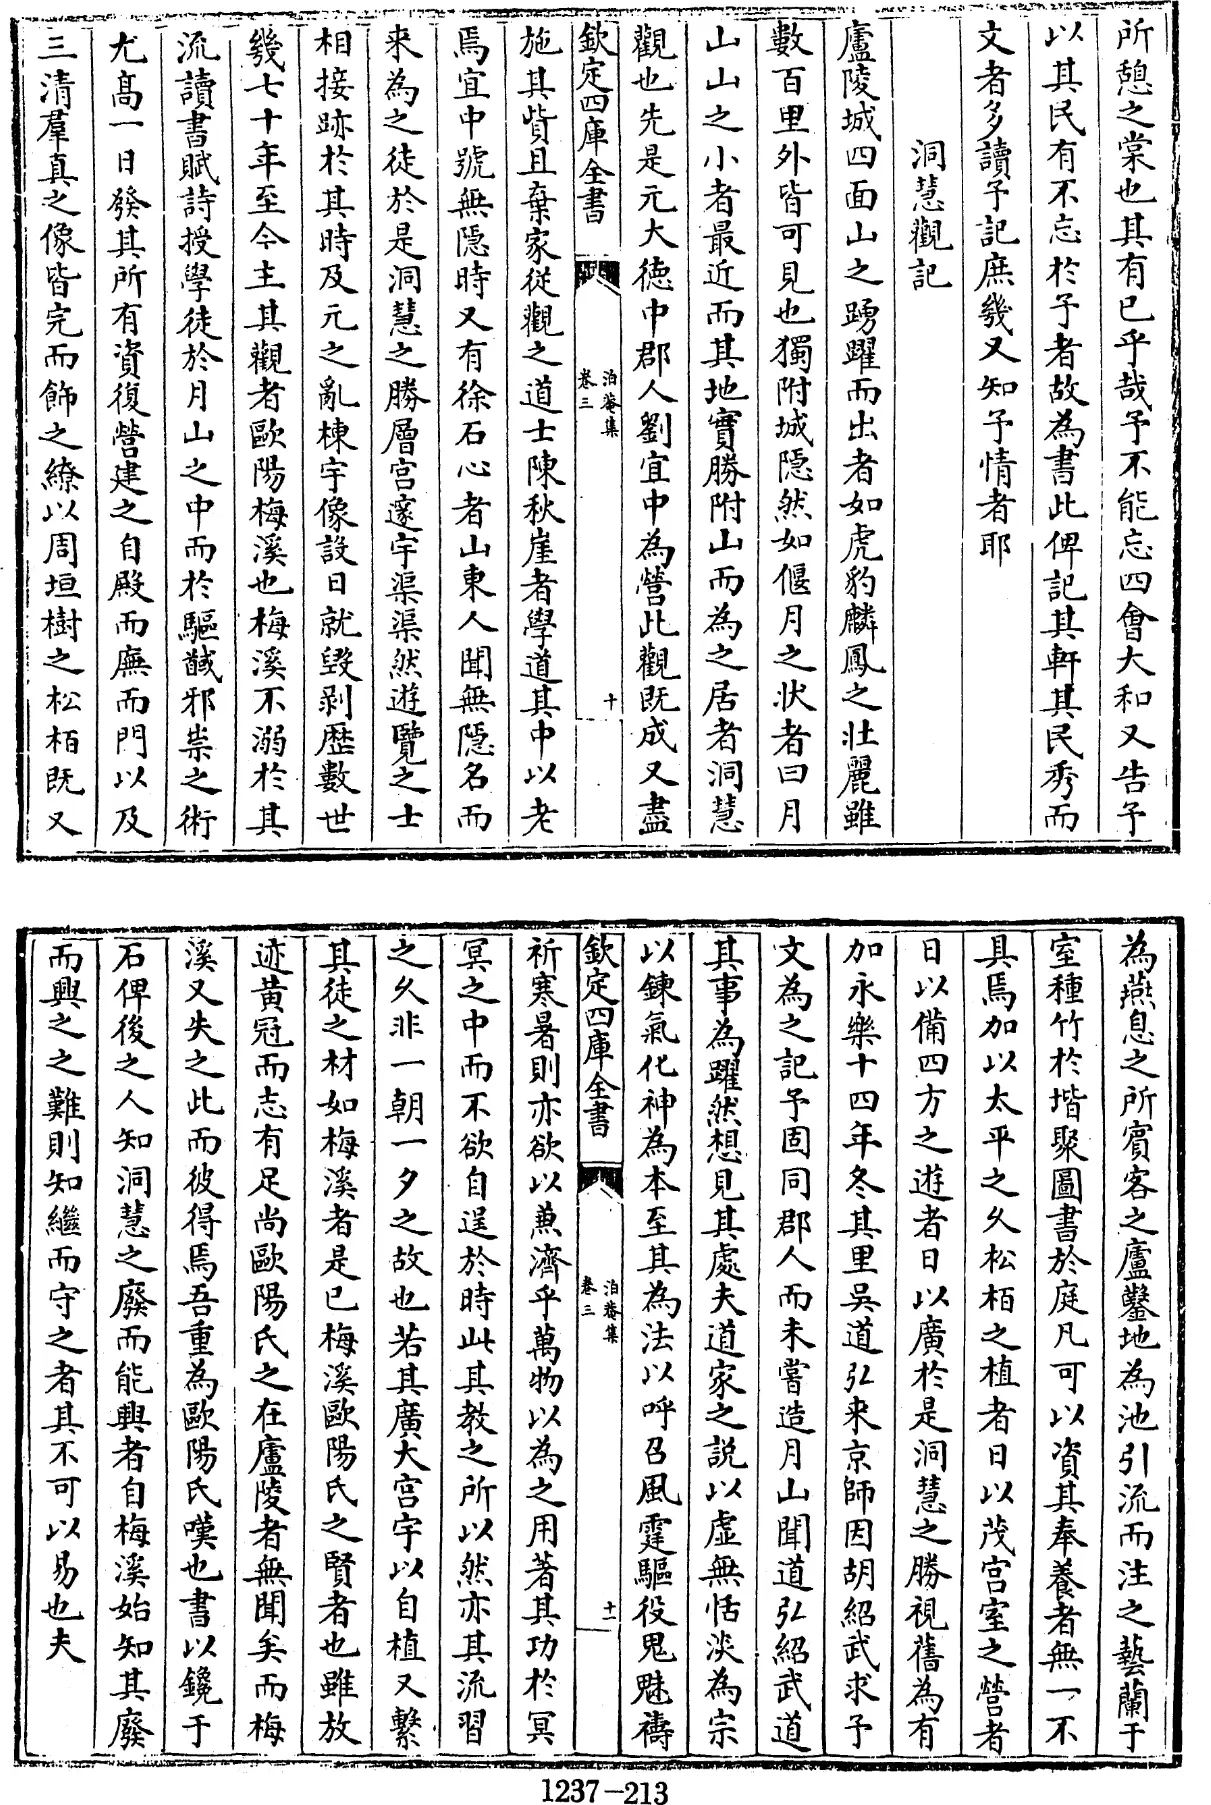 所憩之棠也其有已乎哉予不能忘四會大和又告予
以其民有不忘於予者故為書此俾記其軒其民秀而
文者多讀予記庶幾又知予情者耶
洞慧觀記
廬陵城四面山之踴躍而出者如虎豹麟鳳之壯麗雖
數百里外皆可見也獨附城隠然如偃月之状者曰月
山山之小者最近而其地實勝附山而為之居者洞慧
觀也先是元大徳中郡人劉宜中為營此觀既成又盡
欽定四庫全書
泊菴集
卷三
十
施其貲且棄家從觀之道士陳秋崖者學道其中以老
焉宜中號無隠時又有徐石心者山東人聞無隠名而
来為之徒於是洞慧之勝層宫邃宇渠渠然遊覽之士
相接跡於其時及元之亂棟宇像設日就毀剥歴數世
幾七十年至今主其觀者歐陽梅溪也梅溪不溺於其
流讀書賦詩授學徒於月山之中而於驅馘邪祟之術
尤髙一日發其所有資復營建之自殿而廡而門以及
三清羣真之像皆完而飾之繚以周垣樹之松栢既又
為燕息之所賓客之廬鑿地為池引流而注之藝蘭于
室種竹於堦聚圖書於庭凡可以資其奉養者無一不
具焉加以太平之乆松栢之植者日以茂宫室之營者
日以備四方之遊者日以廣於是洞慧之勝視舊為有
加永樂十四年冬其里吳道弘来京師因胡紹武求予
文為之記予固同郡人而未嘗造月山聞道弘紹武道
其事為躍然想見其處夫道家之説以虚無恬淡為宗
以鍊氣化神為本至其為法以呼召風霆驅役鬼魅禱
欽定四庫全書
泊菴集
卷三
十一
祈寒暑則亦欲以兼濟乎萬物以為之用著其功於冥
冥之中而不欲自逞於時此其教之所以然亦其流習
之乆非一朝一夕之故也若其廣大宫宇以自植又繫
其徒之材如梅溪者是已梅溪歐陽氏之賢者也雖放
迹黄冠而志有足尚歐陽氏之在廬陵者無聞矣而梅
溪又失之此而彼得焉吾重為歐陽氏嘆也書以鑱于
石俾後之人知洞慧之廢而能興者自梅溪始知其廢
而興之之難則知繼而守之者其不可以易也夫
1237-213